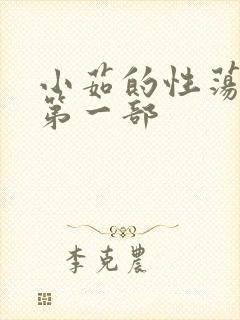 小茹的性荡
第一部
李克农